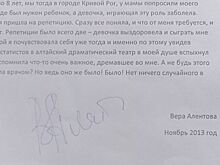 ло 8 лет, мы тогда в городе Кривой Рог, у мамы попросили моего
де был нужен ребенок, а девочка, играющая эту роль заболела.
я пришла на репетицию. Сразу все поняла, и что от меня требуется, и
. Репетиции было всего две – девочка выздоровела и сыграть мне
ой я почувствовала себя уже тогда и именно по этому увидев
статистов в алтайский драматический театр в моей душе всплыхнул
спомнила что-то очень важное, дремавшее во мне. А я ведь буду
ла врачом? Но ведь оно же было! Было! Нет ничего случайного в
Вера Алентова
Ноябрь 2013 год